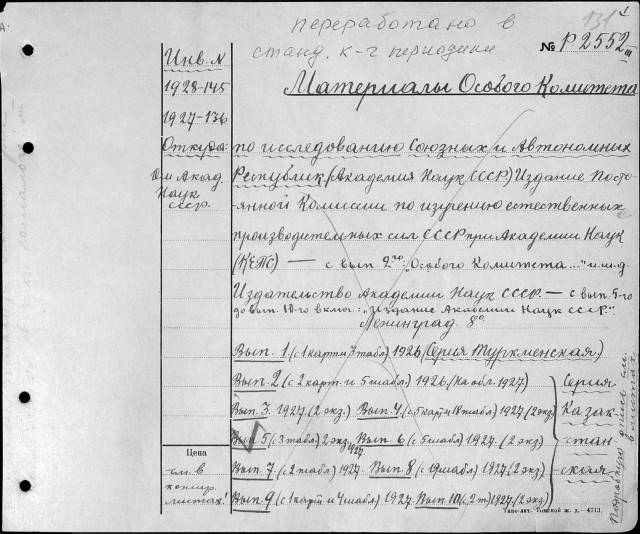 переработано в
станд. к-г периодики
131
№ Р2552 III
Инв. N
1928-145
1927-136
Откуда:
Ои Акад.
Наук
СССР.
Материалы Особого Комитета
по исследованию Союзных и Автономных
Республик. (Академия Наук СССР.) Издание Посто-
янной Комиссии по изучению естественных
производительных сил СССР при Академии Наук
(КЕПС) — с вып. 2го: "Особого Комитета..." и т.д.
Издательство Академии Наук СССР. — с вып. 5-го
до вып. 10-го включ: "Издание Академии Наук СССР."
Ленинград. 8°.
Вып. 1 (с 1 карт и 3 табл) 1926 (Серия Туркменская)
Вып. 2 (с 2 карт. и 5 табл.) 1926. (На обл. 1927)
Вып. 3. 1927. (2 экз.) Вып. 4. (с 5 карт и 18 табл) 1927. (2 экз)
Вып. 5 (с 3 табл.) 2 экз. 1927. Вып. 6 (с 5 табл) 1927. (2 экз)
Вып. 7 (с 2 табл) 1927. Вып. 8 (с 19 табл) 1927. (2 экз)
Вып. 9 (с 1 карт и 4 табл) 1927. Вып. 10 (с 2 т.) 1927. (2 экз)
Серия
Казак-
стан-
ская
Цена
см. в
концер.
листах!
Подробную опись см.
в листах
Типо-лит. Томской ж. д.—4713.